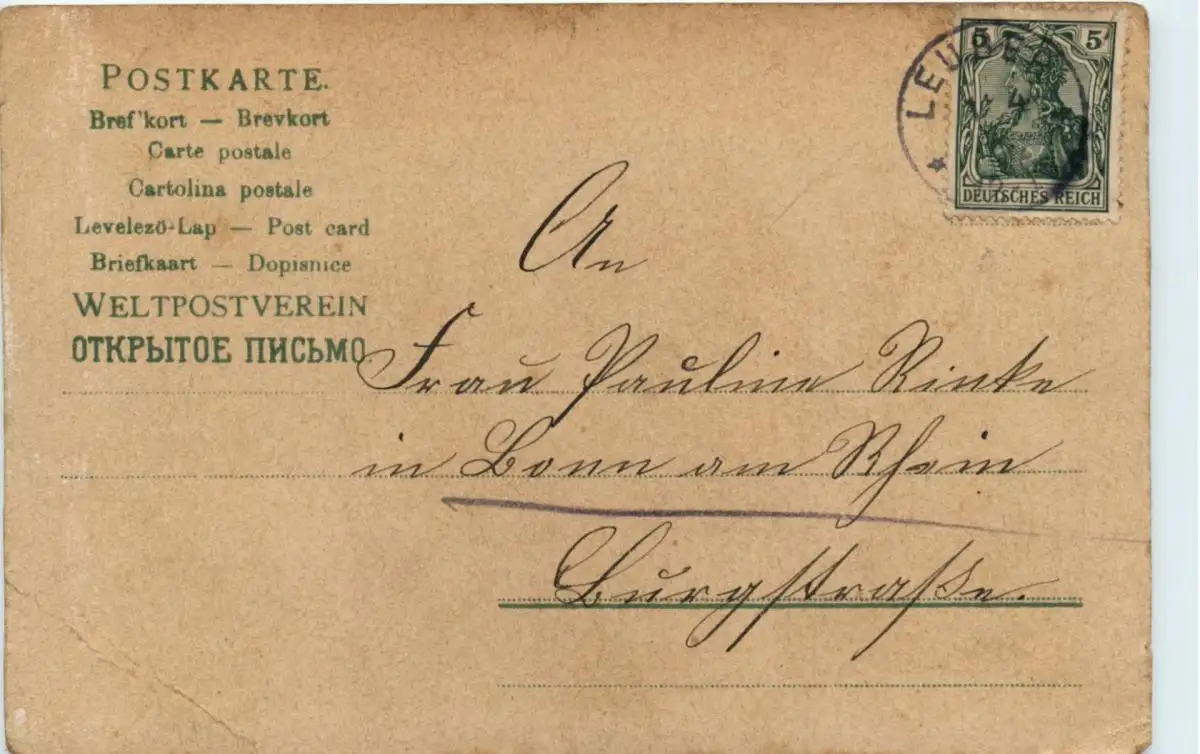 POSTKARTE.
Bref'kort — Brevkort
Carte postale
Cartolina postale
Levelezö-Lap — Post card
Briefkaart — Dopisnice
WELTPOSTVEREIN
ОТКРЫТОЕ ПИСЬМО
5 5
DEUTSCHES REICH
An
Frau Pauline Rinke
in Bonn am Rhein
Burgstraße.